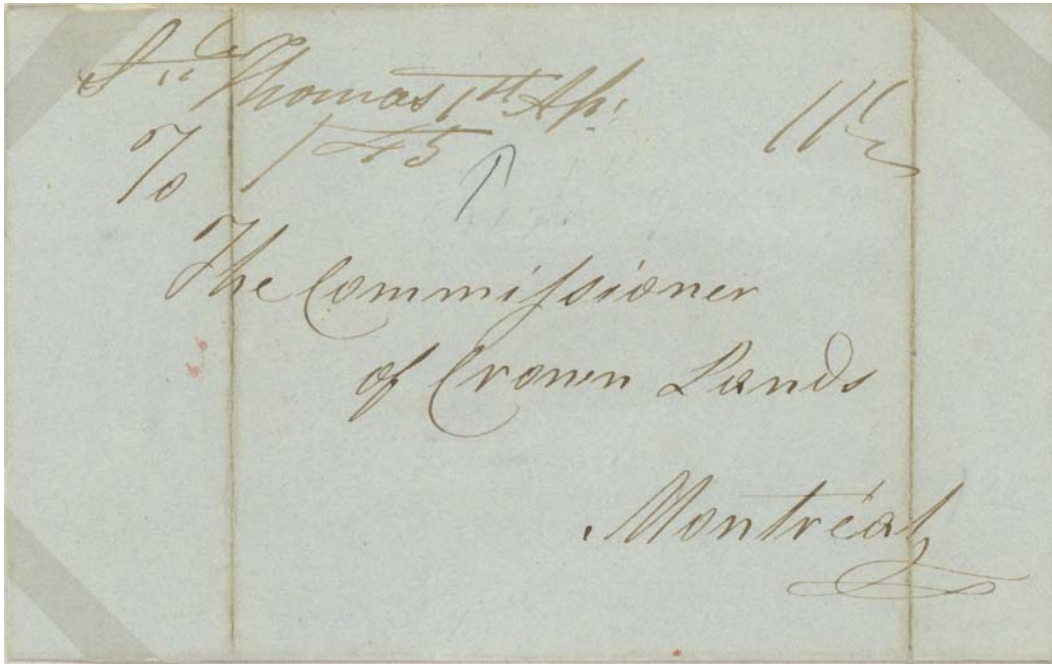 Ste Thomas 1st Ap:
1845
11½
To
The Commissioner
of Crown Lands
Montréal